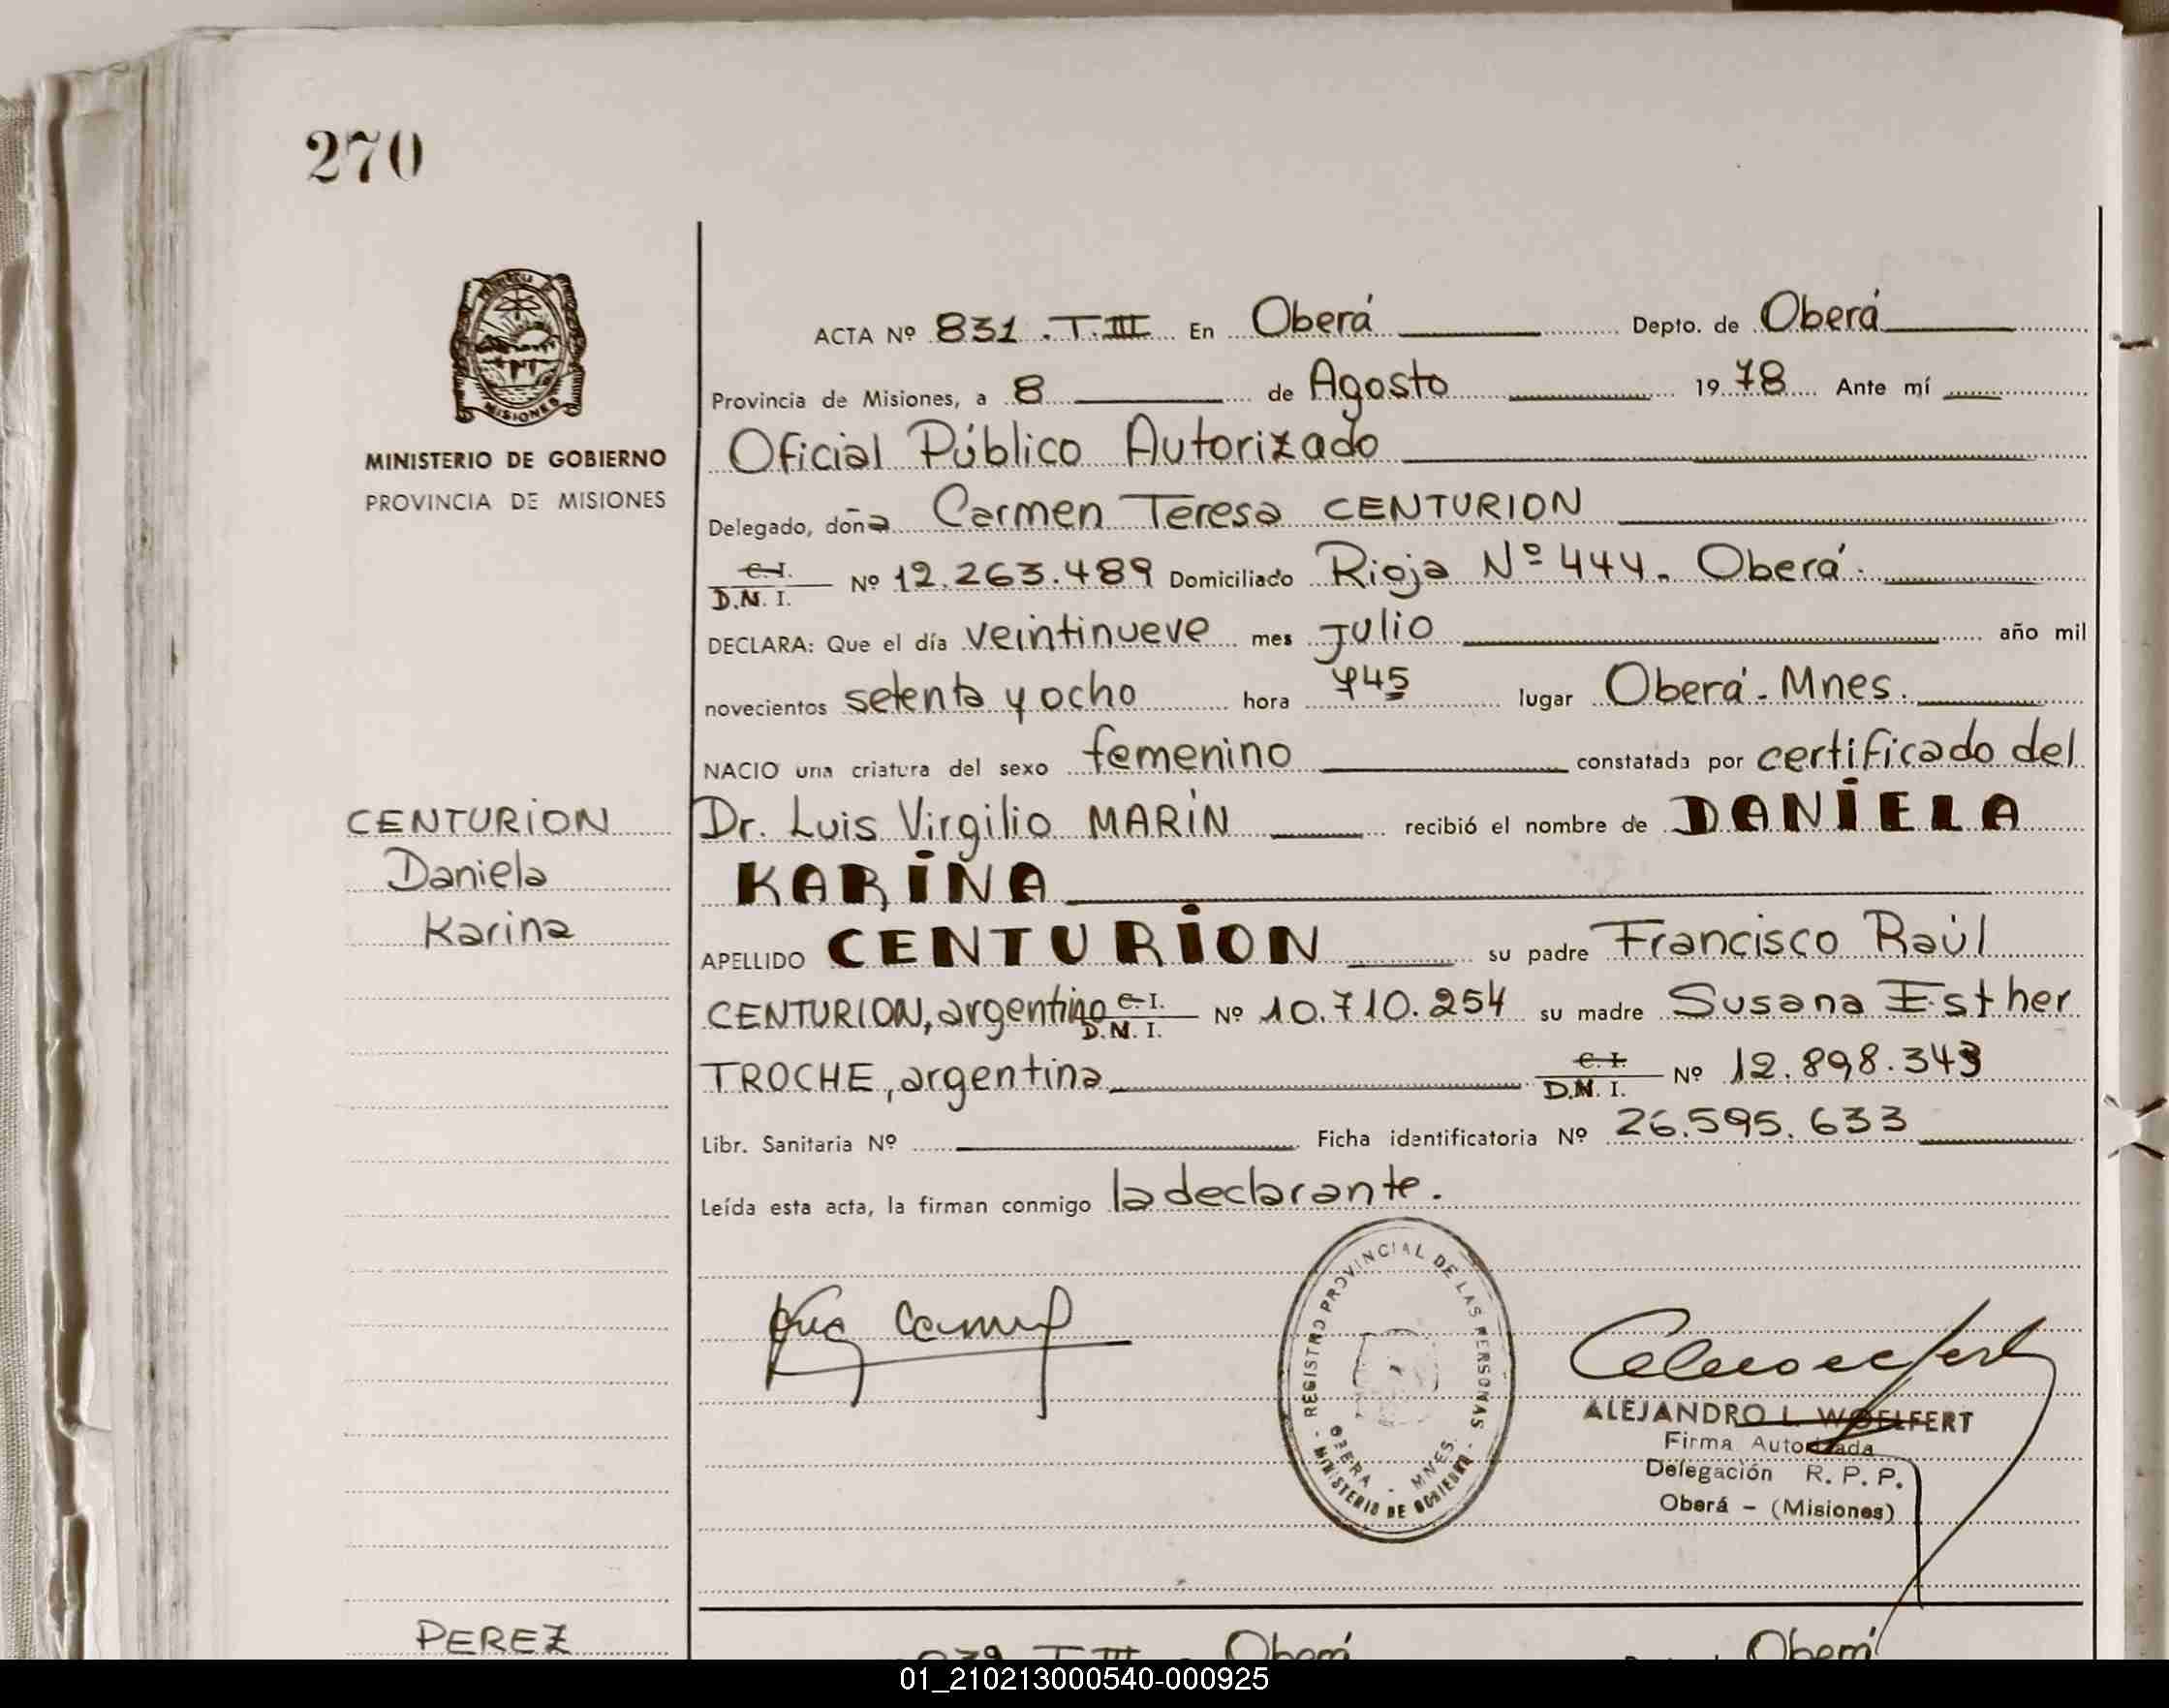 270
MISIONES
MINISTERIO DE GOBIERNO
PROVINCIA DE MISIONES
ACTA Nº 831 . T. III En Oberá Depto. de Oberá
Provincia de Misiones, a 8 de Agosto 1978 Ante mí
Oficial Público Autorizado
Delegado, doña Carmen Teresa CENTURION
C. I.
D.N. I. Nº 12.263.489 Domiciliado Rioja Nº 444. Oberá.
DECLARA: Que el día veintinueve mes julio año mil
novecientos setenta y ocho hora 745 lugar Oberá - Mnes.
NACIO una criatura del sexo femenino constatada por certificado del
CENTURION
Dr. Luis Virgilio MARIN recibió el nombre de DANIELA
Daniela
KARINA
Karina
APELLIDO CENTURION su padre Francisco Raúl
CENTURION, argentino C. I. D.N. I. Nº 10.710.254 su madre Susana Esther
TROCHE, argentina C. I. D.N. I. Nº 12.898.343
Libr. Sanitaria Nº Ficha identificatoria Nº 26.595.633
Leída esta acta, la firman conmigo la declarante.
REGISTRO PROVINCIAL DE LAS PERSONAS
OBERA - MNES.
- MINISTERIO DE GOBIERNO -
ALEJANDRO L. WOELFERT
Firma Autorizada
Delegación R. P. P.
Oberá - (Misiones)
PEREZ
T. III Oberá Oberá
01_210213000540-000925